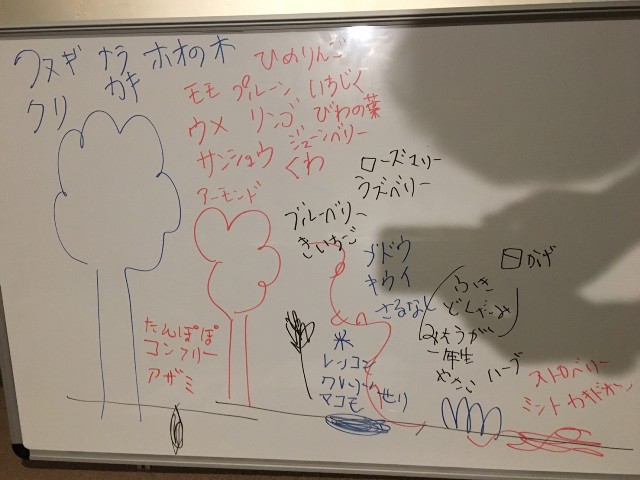 クヌギ ナラ ホオの木
クリ カキ
ひめりんご
モモ プルーン いちじく
ウメ リンゴ びわの葉
サンショウ ジューンベリー
くわ
アーモンド
ローズマリー
ラズベリー
ブルーベリー
きいちご
ブドウ
キウイ
さるなし
日かげ
ふき
どくだみ
みょうが
一年生
やさい ハーブ
たんぽぽ
コンフリー
アザミ
米
レンコン
クレソン せり
マコモ
ストロベリー
ミント カキドオシ